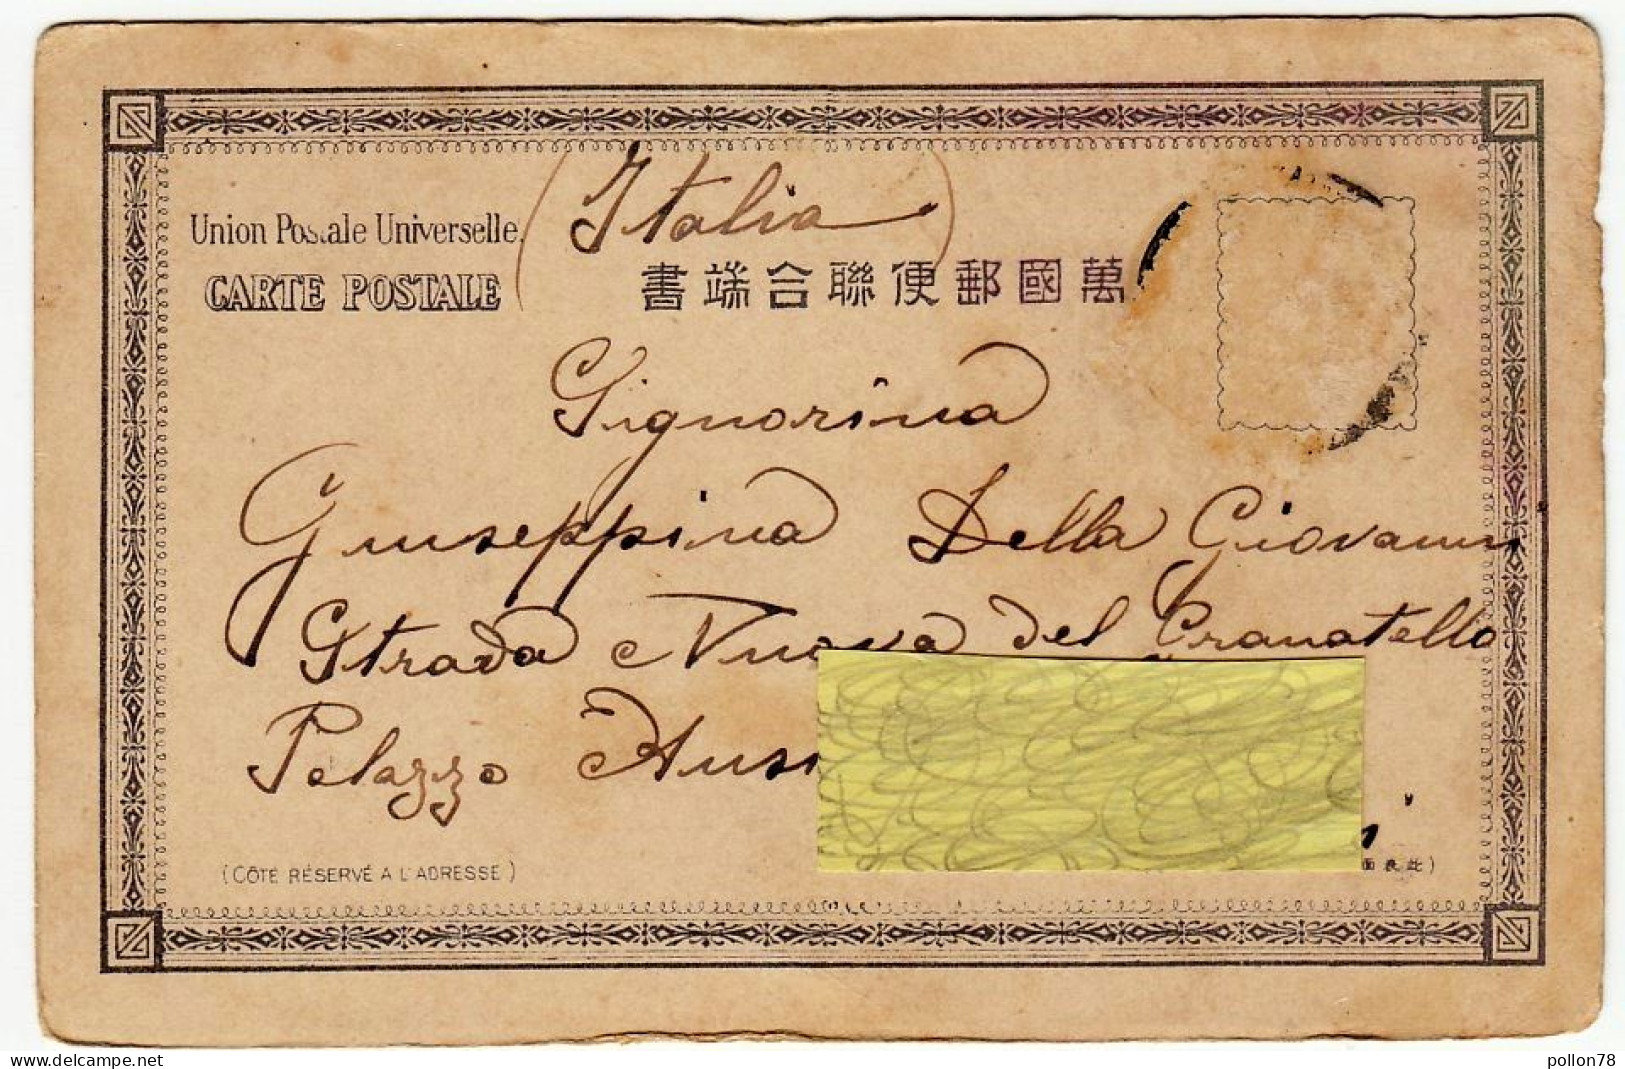 (Italia)
Union Postale Universelle.
CARTE POSTALE
書端合聯便郵國萬
Signorina
Giuseppina Della Giovanni
Strada Nuova del Granatello
Palazzo
(CÔTÉ RÉSERVÉ A L'ADRESSE)
面表此)
www.delcampe.net
pollon78